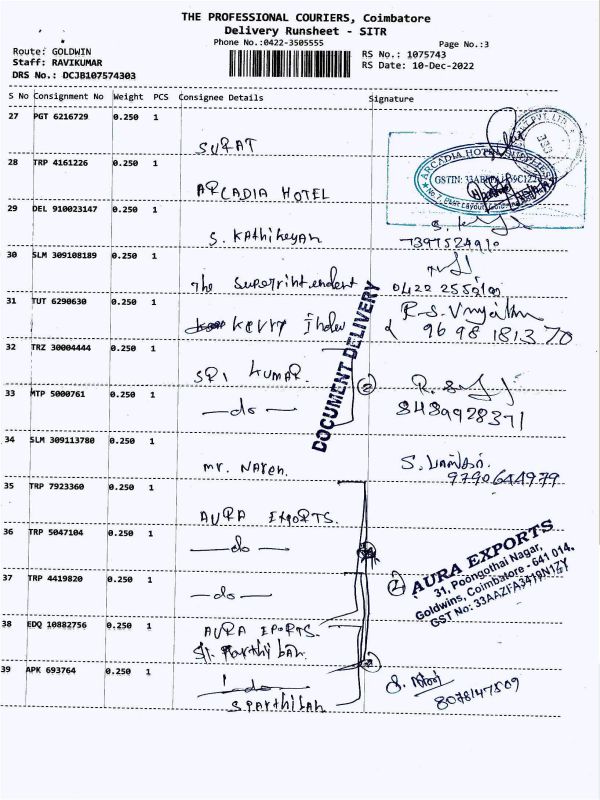 THE PROFESSIONAL COURIERS, Coimbatore
Delivery Runsheet - SITR
Phone No.:0422-3505555
Page No.:3
Route: GOLDWIN
Staff: RAVIKUMAR
DRS No.: DCJB107574303
RS No.: 1075743
RS Date: 10-Dec-2022
S No Consignment No Weight PCS Consignee Details Signature
27 PGT 6216729 0.250 1
SURAT
28 TRP 4161226 0.250 1
ARCADIA HOTEL
ARCADIA HOTEL
29 DEL 910023147 0.250 1
S. Kathikeyan
7397524910
30 SLM 309108189 0.250 1
The Superintendent
0422
31 TUT 6290630 0.250 1
96 98 1813 70
32 TRZ 30004444 0.250 1
SRI KUMAR
DOCUMENT DELIVERY
33 MTP 5000761 0.250 1
—do—
8489928371
34 SLM 309113780 0.250 1
Mr. Naren.
9790644979
35 TRP 7923360 0.250 1
AURA EXPORTS.
36 TRP 5047104 0.250 1
—do—
37 TRP 4419820 0.250 1
—do—
AURA EXPORTS
31, Poongothai Nagar,
Goldwins, Coimbatore - 641 014.
GST No: 33AAZFA3419N1ZY
38 EDQ 10882756 0.250 1
AURA EPORTS.
39 APK 693764 0.250 1
Sparthiban
8078147509